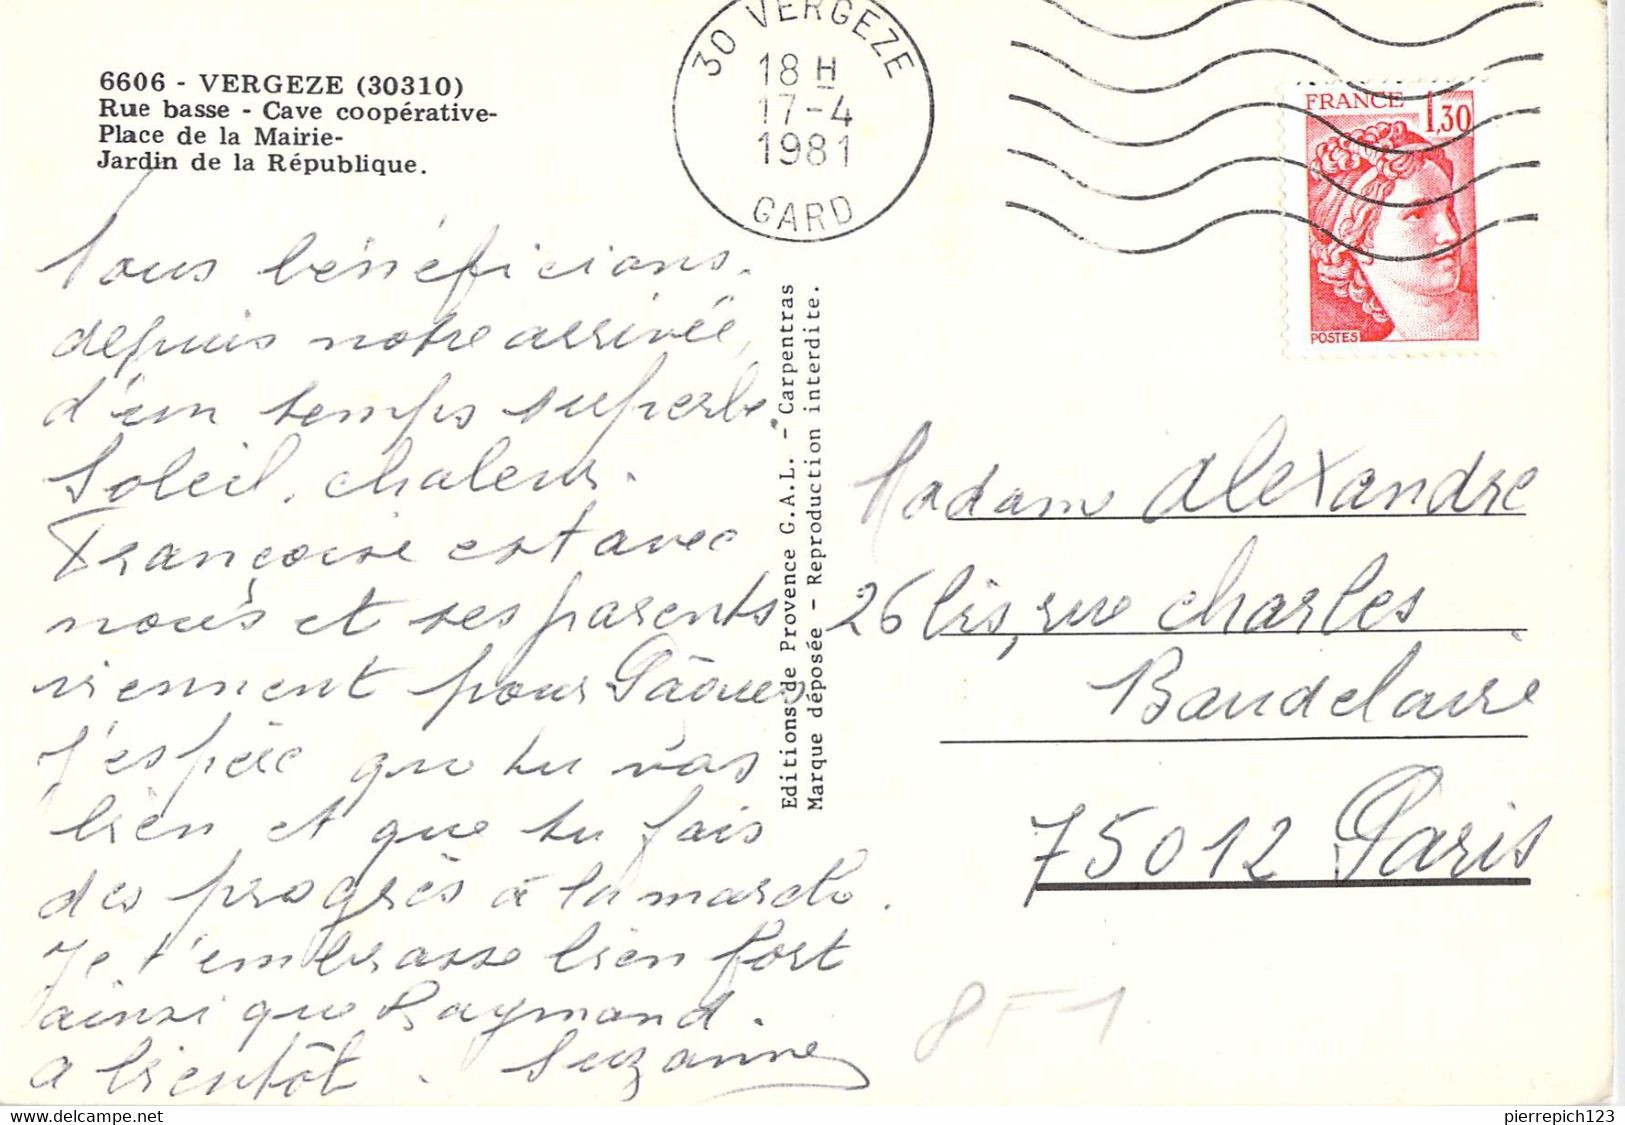 6606 - VERGEZE (30310)
Rue basse - Cave coopérative-
Place de la Mairie-
Jardin de la République.
30 VERGEZE
18 H
17-4
1981
GARD
FRANCE 1,30
POSTES
Nous bénéficions.
depuis notre arrivée,
d'un temps superbe.
Soleil, chaleur.
Françoise est avec
nous et ses parents
viennent pour Pâques
J'espère que tu vas
bien et que tu fais
des progrès à la marche.
Je t'embrasse bien fort
ainsi que Raymond.
a bientôt. Suzanne
Editions de Provence G.A.L. - Carpentras
Marque déposée - Reproduction interdite.
Madame Alexandre
26 bis, rue Charles
Baudelaire
75012 Paris
8F1
pierrepich123
www.delcampe.net